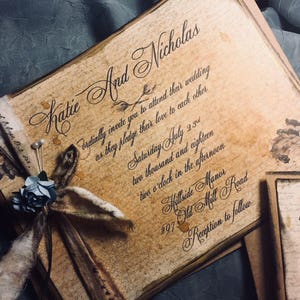 Katie And Nicholas
cordially invite you to attend their wedding
as they pledge their love to each other
Saturday July 23rd
two thousand and eighteen
two o'clock in the afternoon
Hillside Manor
Old Mill Road
Reception to follow